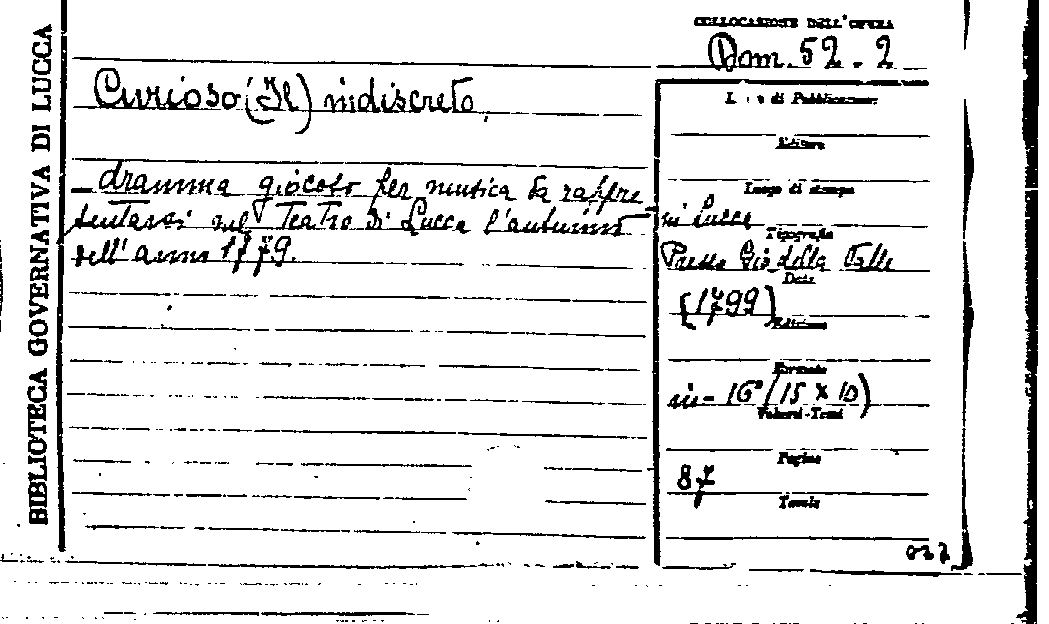 BIBLIOTECA GOVERNATIVA DI LUCCA
COLLOCAZIONE DELL'OPERA
Dom. 52. 2
Curioso (Il) indiscreto,
dramma giocoso per musica da rappre-
sentarsi nel Teatro di Lucca l'autunno
dell'anno 1779.
di Pubblicazione
Editore
Luogo di stampa
in Lucca
Tipografia
Presso Gio della Valle
Data
[1799]
Edizione
Formato
in-16° (15 x 10)
Volumi-Tomi
Pagine
87
Tavole